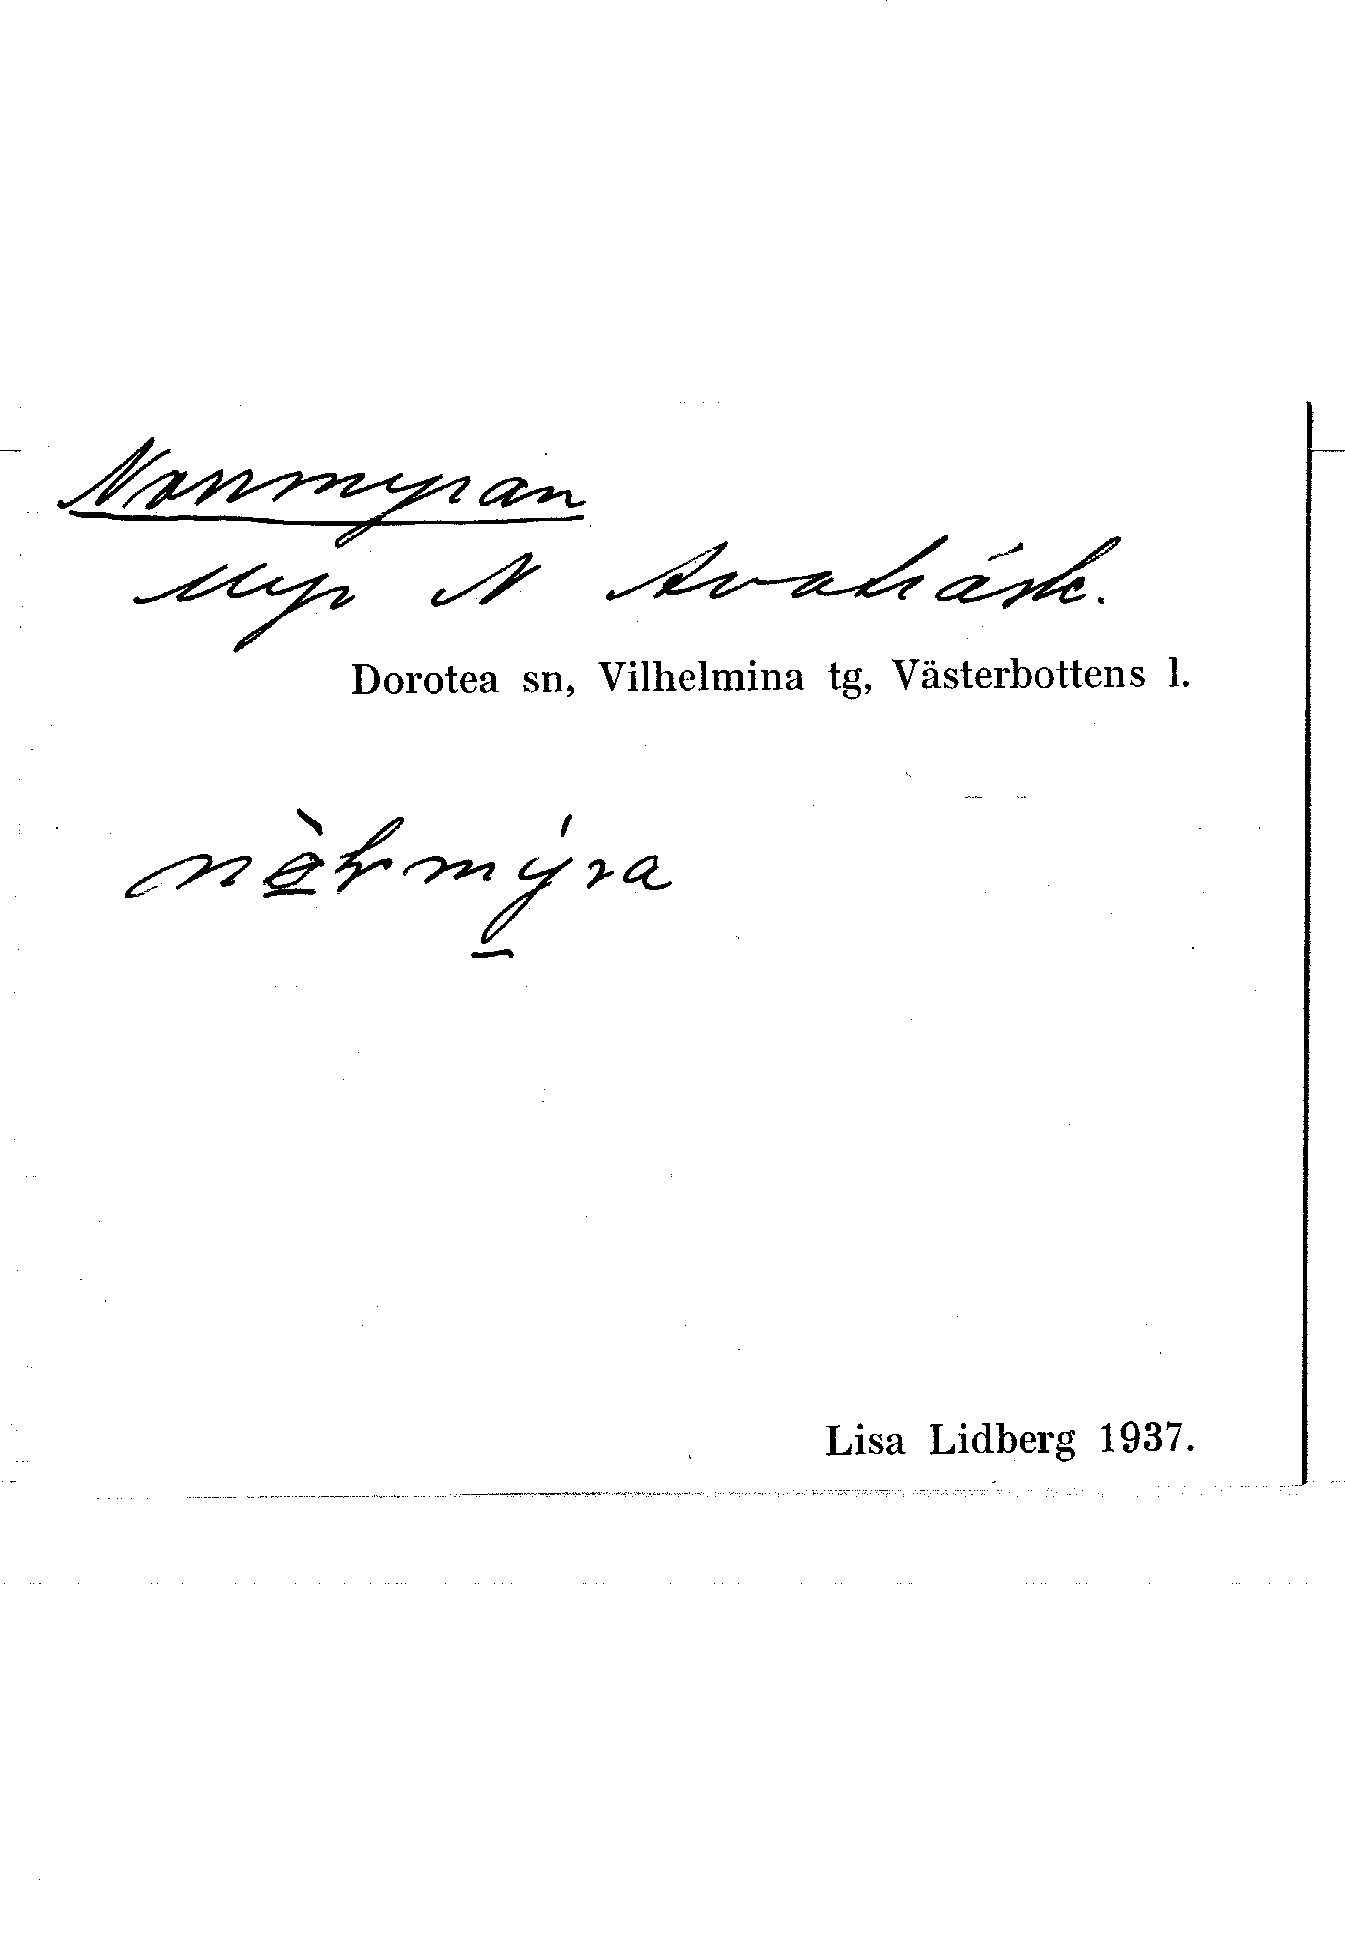 Norrmyran
Myr N Avaträsk.
Dorotea sn, Vilhelmina tg, Västerbottens l.
Lisa Lidberg 1937.